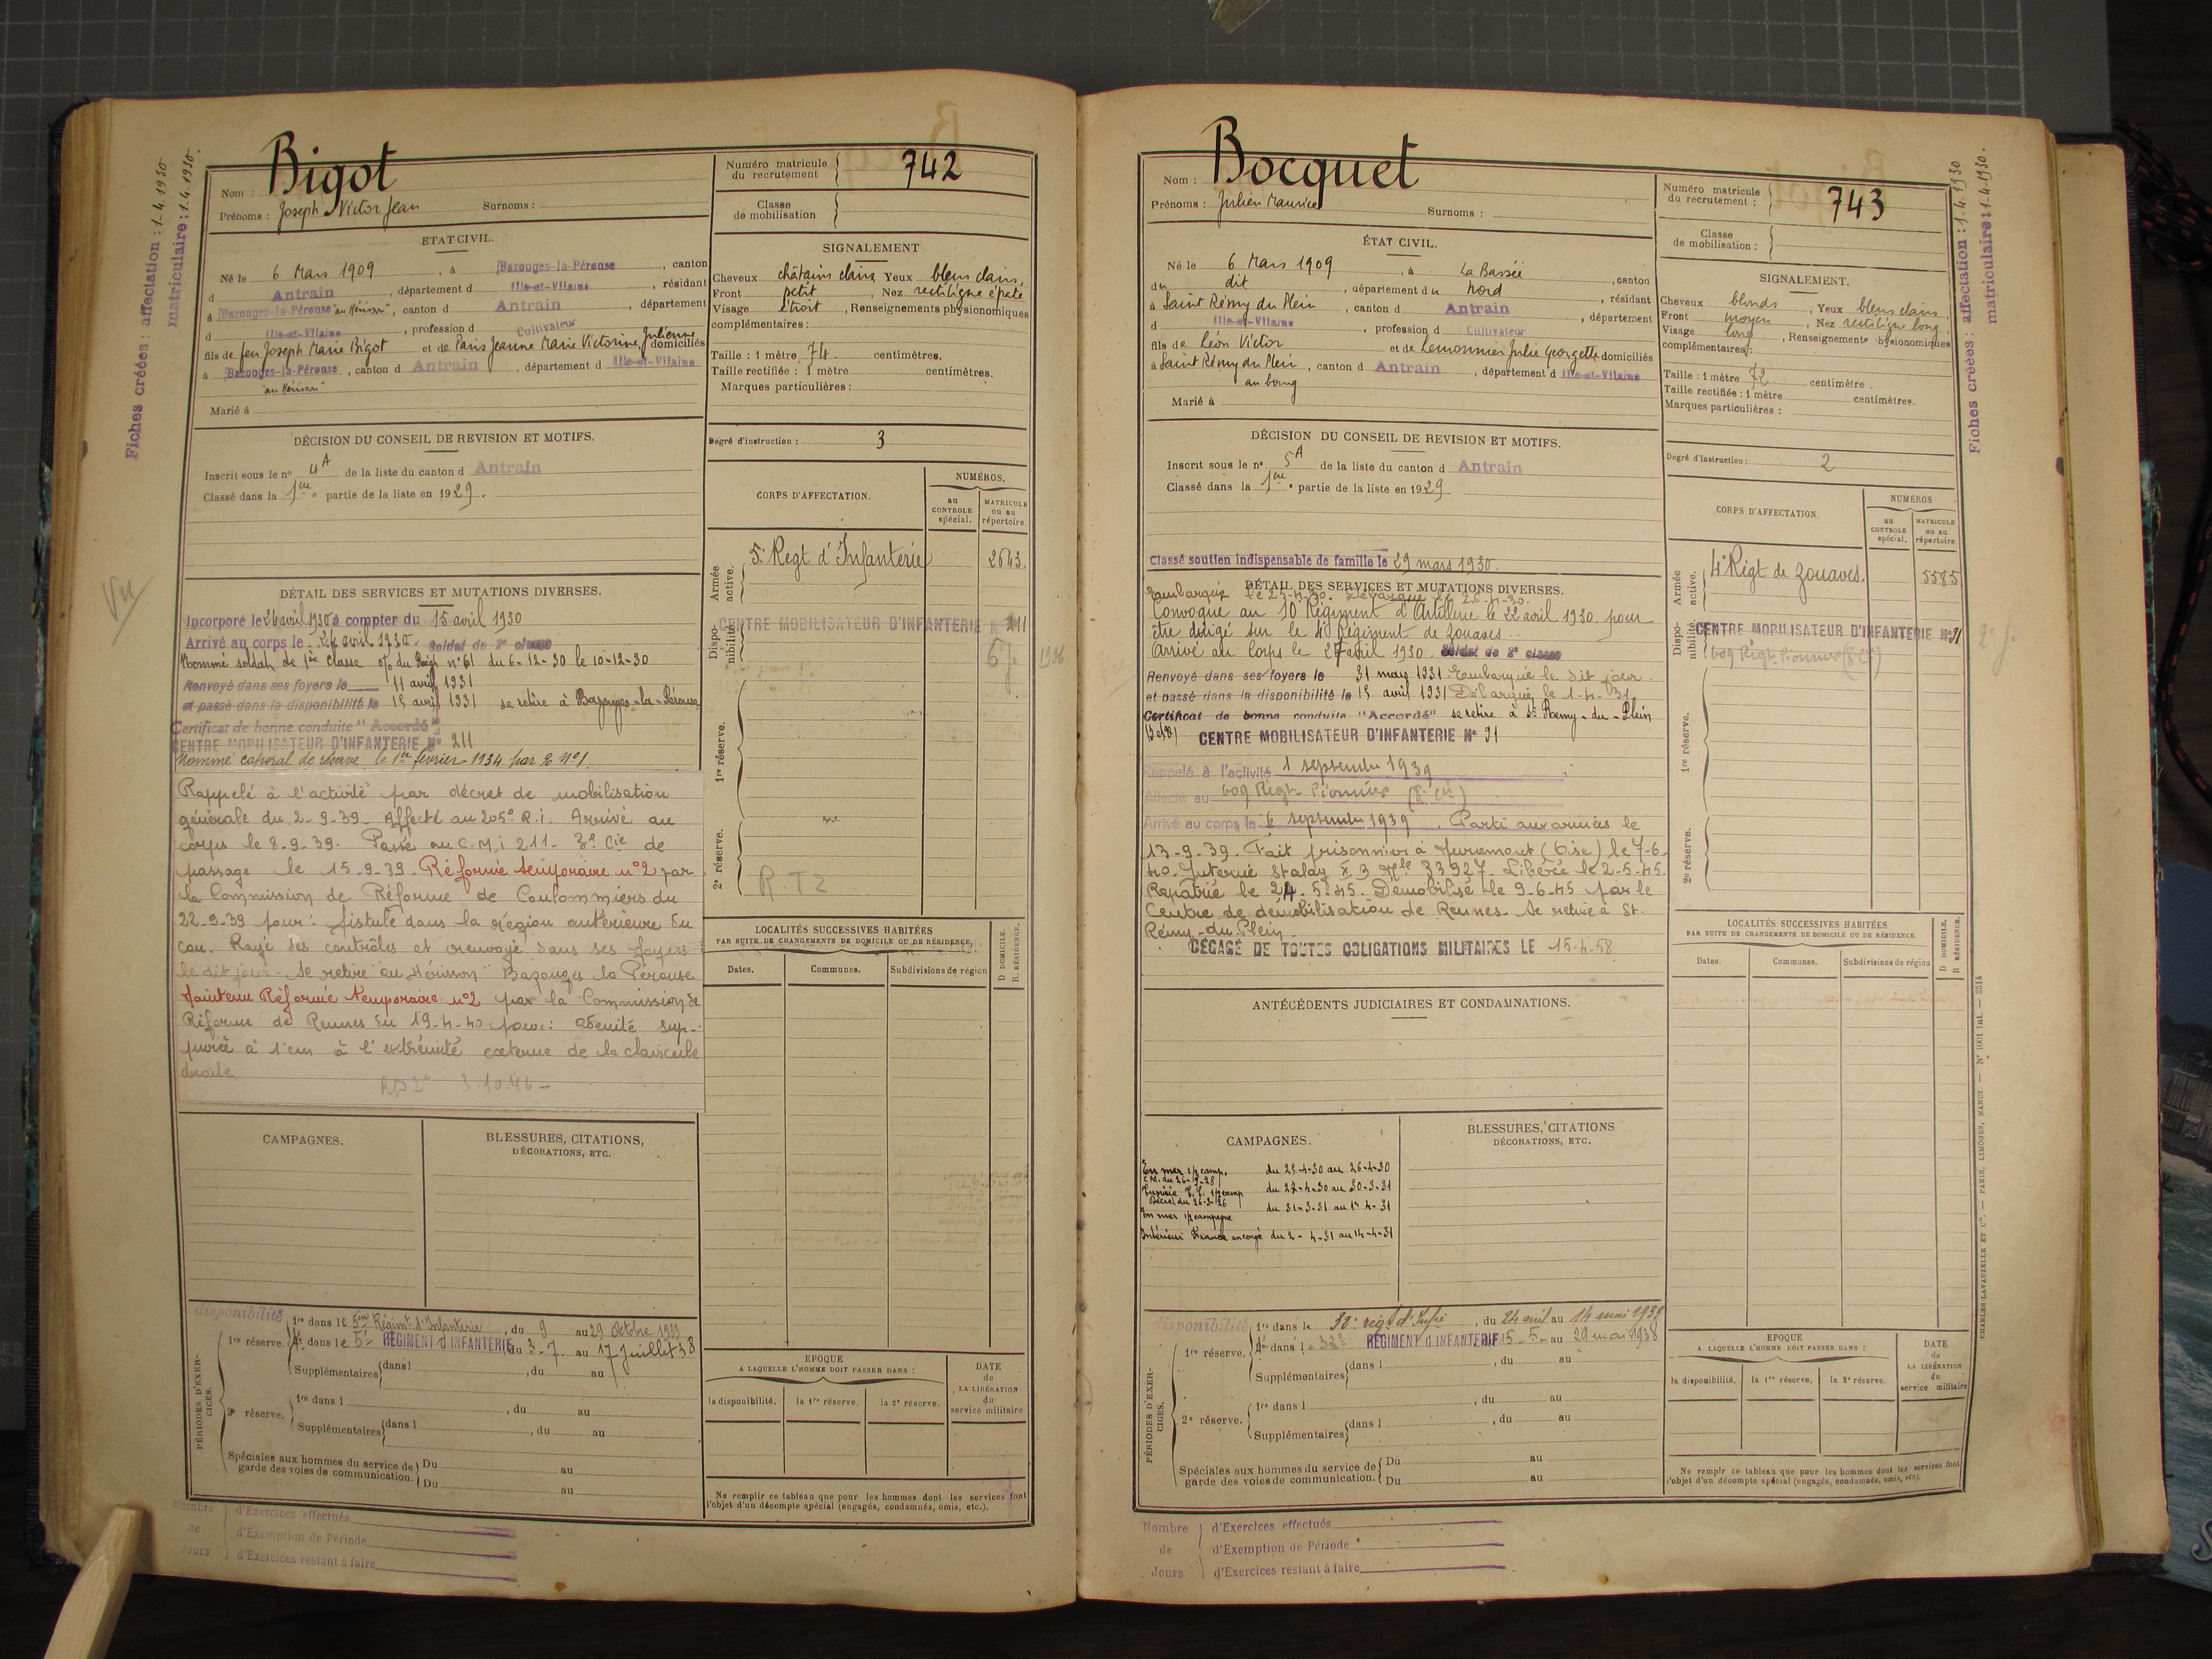 Fiches créées : affectation : 1-4-1930
matriculaire : 1-4-1930.
Nom : Bigot
Prénoms : Joseph Victor Jean Surnoms :
ETAT CIVIL.
Né le 6 Mars 1909, à Bazouges-la-Pérouse, canton
d Antrain, département d Ille-et-Vilaine, résidant
à Bazouges-la-Pérouse "au Hérisson", canton d Antrain, département
d Ille-et-Vilaine, profession d Cultivateur
fils de feu Joseph Marie Bigot et de Paris Jeanne Marie Victorine Julienne, domiciliés
à Bazouges-la-Pérouse, canton d Antrain, département d Ille-et-Vilaine
"au Hérisson"
Marié à
DÉCISION DU CONSEIL DE REVISION ET MOTIFS.
Inscrit sous le n° 4A de la liste du canton d Antrain
Classé dans la 1ère partie de la liste en 1929.
DÉTAIL DES SERVICES ET MUTATIONS DIVERSES.
Vu
Incorporé le 24 avril 1930 à compter du 15 avril 1930
Arrivé au corps le 24 avril 1930. Soldat de 2e classe
Nommé soldat de 1ère classe o/ du Régt n° 61 du 6-12-30 le 10-12-30
Renvoyé dans ses foyers le 11 avril 1931
et passé dans la disponibilité le 15 avril 1931 se retire à Bazouges-la-Pérouse
Certificat de bonne conduite "Accordé"
CENTRE MOBILISATEUR D'INFANTERIE N° 211
Nommé caporal de réserve le 1er février 1934 par D. N° 1.
Rappelé à l'activité par décret de mobilisation
générale du 2-9-39. Affecté au 205e R.I. Arrivé au
corps le 8-9-39. Passé au C.M.I 211. 3e Cie de
passage le 15-9-39. Réformé temporaire n°2 par
la Commission de Réforme de Coulommiers du
22-9-39 pour : fistule dans la région antérieure du
cou. Rayé des contrôles et renvoyé dans ses foyers
le dit jour. Se retire au Hérisson Bazouges la Pérouse
Maintenu Réformé temporaire n°2 par la Commission de
Réforme de Rennes du 19-4-40 pour : adénite sup-
purée à 1 cm à l'extrémité externe de la clavicule
droite.
3.10.46
CAMPAGNES.
BLESSURES, CITATIONS,
DÉCORATIONS, ETC.
PÉRIODES D'EXERCICES.
disponibilité
1re réserve. 1re dans le 5me Régimt d'Infanterie, du 9 au 29 Octobre 1933
2e dans le 5e RÉGIMENT D'INFANTERIE du 3-7 au 17 juillet 38
Supplémentaires dans l , du au
2e réserve. 1re dans l , du au
Supplémentaires dans l , du au
Spéciales aux hommes du service de garde des voies de communication. Du au
Du au
Nombre de Jours
d'Exercices effectués
d'Exemption de Période
d'Exercices restant à faire
Numéro matricule du recrutement 742
Classe de mobilisation
SIGNALEMENT
Cheveux châtains clairs Yeux bleus clairs,
Front petit, Nez rectiligne épaté
Visage étroit, Renseignements physionomiques
complémentaires :
Taille : 1 mètre 74 centimètres.
Taille rectifiée : 1 mètre centimètres.
Marques particulières :
Degré d'instruction : 3
CORPS D'AFFECTATION.
NUMÉROS.
au CONTROLE spécial.
MATRICULE ou au répertoire.
Armée active.
5e Regt d'Infanterie 2643.
Disponibilité.
CENTRE MOBILISATEUR D'INFANTERIE N° 211
1936
1re réserve.
2e réserve.
R.T2
LOCALITÉS SUCCESSIVES HABITÉES
PAR SUITE DE CHANGEMENTS DE DOMICILE OU DE RÉSIDENCE.
D. DOMICILE.
R. RÉSIDENCE.
Dates. Communes. Subdivisions de région
EPOQUE
A LAQUELLE L'HOMME DOIT PASSER DANS :
la disponibilité. la 1re réserve. la 2e réserve.
DATE de LA LIBÉRATION du service militaire
Ne remplir ce tableau que pour les hommes dont les services font
l'objet d'un décompte spécial (engagés, condamnés, omis, etc.).
Nom : Bocquet
Prénoms : Julien Maurice Surnoms :
ÉTAT CIVIL.
Né le 6 Mars 1909, à La Bassée, canton
du dit, département du Nord, résidant
à Saint Rémy du Plein, canton d Antrain, département
d Ille-et-Vilaine, profession d Cultivateur
fils de Léon Victor et de Lemonnier Julie Georgette domiciliés
à Saint Rémy du Plein, canton d Antrain, département d Ille-et-Vilaine
au bourg
Marié à
DÉCISION DU CONSEIL DE REVISION ET MOTIFS.
Inscrit sous le n° 5A de la liste du canton d Antrain
Classé dans la 1ère partie de la liste en 1929
Classé soutien indispensable de famille le 29 mars 1930.
DÉTAIL DES SERVICES ET MUTATIONS DIVERSES.
Embarqué le 25-4-30. Débarqué le 26-4-30.
Convoqué au 10e Régiment d'Artillerie le 22 avril 1930 pour
être dirigé sur le 4e Régiment de Zouaves.
Arrivé au Corps le 27 avril 1930. Soldat de 2e classe
Renvoyé dans ses foyers le 31 mars 1931 Embarqué le dit jour.
et passé dans la disponibilité le 15 avril 1931 Débarqué le 1-4-31
Certificat de bonne conduite "Accordé" se retire à St Remy-du-Plein
CENTRE MOBILISATEUR D'INFANTERIE N° 91
Rappelé à l'activité 1 septembre 1939
Affecté au 609 Régt. Pionnier (8e Cie)
Arrivé au corps le 6 septembre 1939. Parti aux armées le
13-9-39. Fait prisonnier à (Oise) le 7-6
40. Interné Stalag X B Mle 33927. Libéré le 2-5-45.
Rapatrié le 24-5-45. Démobilisé le 9-6-45 par le
Centre de démobilisation de Rennes. Se retire à St.
Rémy-du-Plein.
DÉGAGÉ DE TOUTES OBLIGATIONS MILITAIRES LE 15-4-58
ANTÉCÉDENTS JUDICIAIRES ET CONDAMNATIONS.
CAMPAGNES.
En mer 1/2 camp. du 25-4-30 au 26-4-30
Tunisie 1/2 camp du 27-4-30 au 30-3-31
En mer 1/2 campagne du 31-3-31 au 1er 4-31
Intérieur France en congé du 2-4-31 au 14-4-31
BLESSURES, CITATIONS
DÉCORATIONS, ETC.
PÉRIODES D'EXERCICES.
disponibilité
1re réserve. 1re dans le 32e régt d'Infie, du 24 avril au 14 mai 1938
2e dans l 32e RÉGIMENT D'INFANTERIE 15-5- au 29 mai 1938
Supplémentaires dans l , du au
2e réserve. 1re dans l , du au
Supplémentaires dans l , du au
Spéciales aux hommes du service de garde des voies de communication. Du au
Du au
Nombre de Jours
d'Exercices effectués
d'Exemption de Période
d'Exercices restant à faire
Numéro matricule du recrutement : 743
Classe de mobilisation :
SIGNALEMENT.
Cheveux blonds, Yeux bleus clairs.
Front moyen, Nez rectiligne long.
Visage long, Renseignements physionomiques
complémentaires :
Taille : 1 mètre 72 centimètre.
Taille rectifiée : 1 mètre centimètres.
Marques particulières :
Degré d'instruction : 2
CORPS D'AFFECTATION.
NUMÉROS
au CONTROLE spécial.
MATRICULE ou au répertoire.
Armée active.
4e Régt de Zouaves. 5585
Disponibilité.
CENTRE MOBILISATEUR D'INFANTERIE N° 91
609 Régt Pionnier (8e Cie)
1re réserve.
2e réserve.
LOCALITÉS SUCCESSIVES HABITÉES
PAR SUITE DE CHANGEMENTS DE DOMICILE OU DE RÉSIDENCE.
D DOMICILE.
R. RÉSIDENCE.
Dates. Communes. Subdivisions de région
EPOQUE
A LAQUELLE L'HOMME DOIT PASSER DANS :
la disponibilité. la 1re réserve. la 2e réserve.
DATE de LA LIBÉRATION du service militaire
Ne remplir ce tableau que pour les hommes dont les services font
l'objet d'un décompte spécial (engagés, condamnés, omis, etc).
Fiches créées : affectation : 1-4-1930
matriculaire : 1-4-1930.
CHARLES-LAVAUZELLE ET Cie. — PARIS, LIMOGES, NANCY. — N° 1001 Int. — 2514